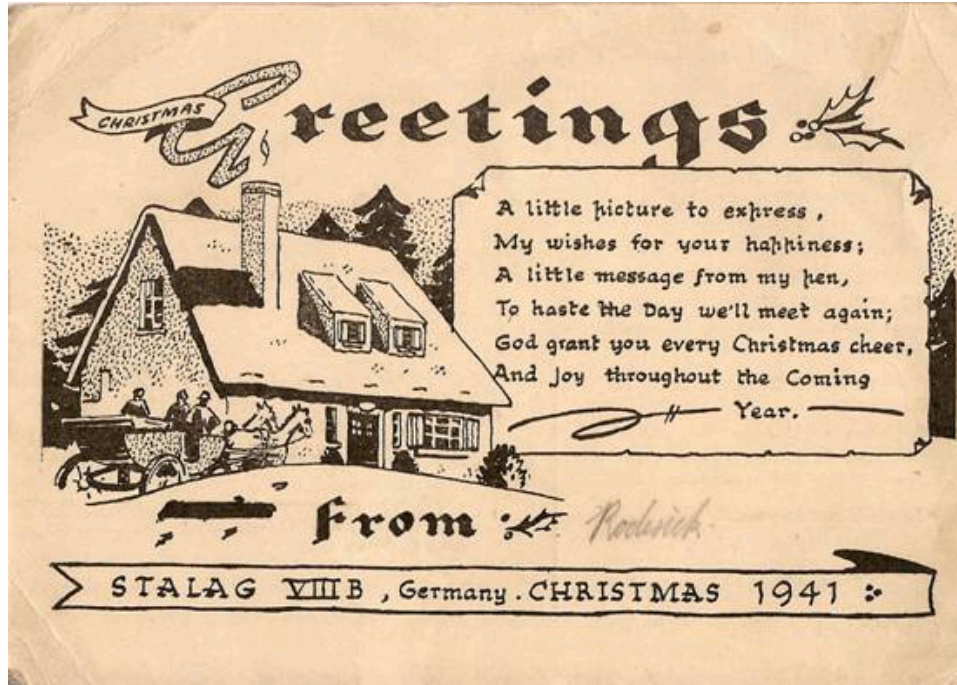 CHRISTMAS
Greetings
A little picture to express,
My wishes for your happiness;
A little message from my pen,
To haste the Day we'll meet again;
God grant you every Christmas cheer,
And Joy throughout the Coming
Year.
From Roderick
STALAG VIIIB, Germany. CHRISTMAS 1941